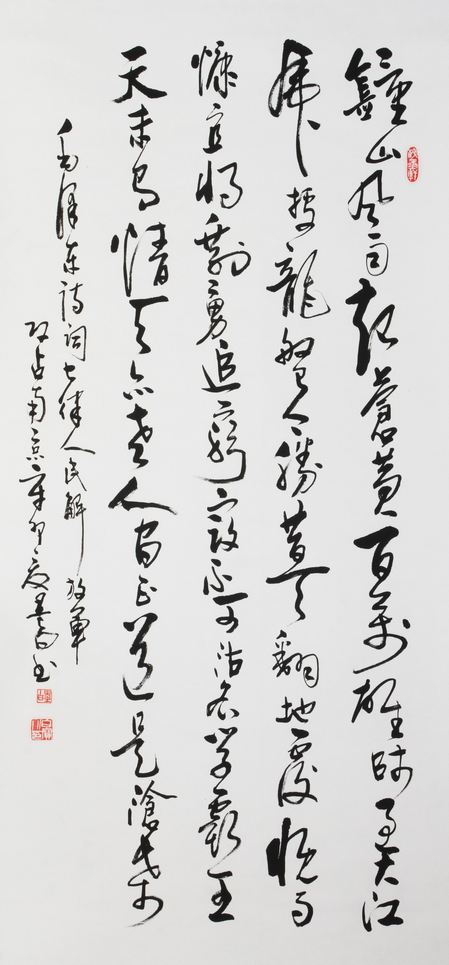 鐘山风雨起蒼黄百萬雄師过大江
虎踞龍盤今勝昔天翻地覆慨而
慷宜将剩勇追窮寇不可沽名学霸王
天若有情天亦老人间正道是滄桑
毛泽东詩词七律人民解放軍
攻占南京辛卯夏書